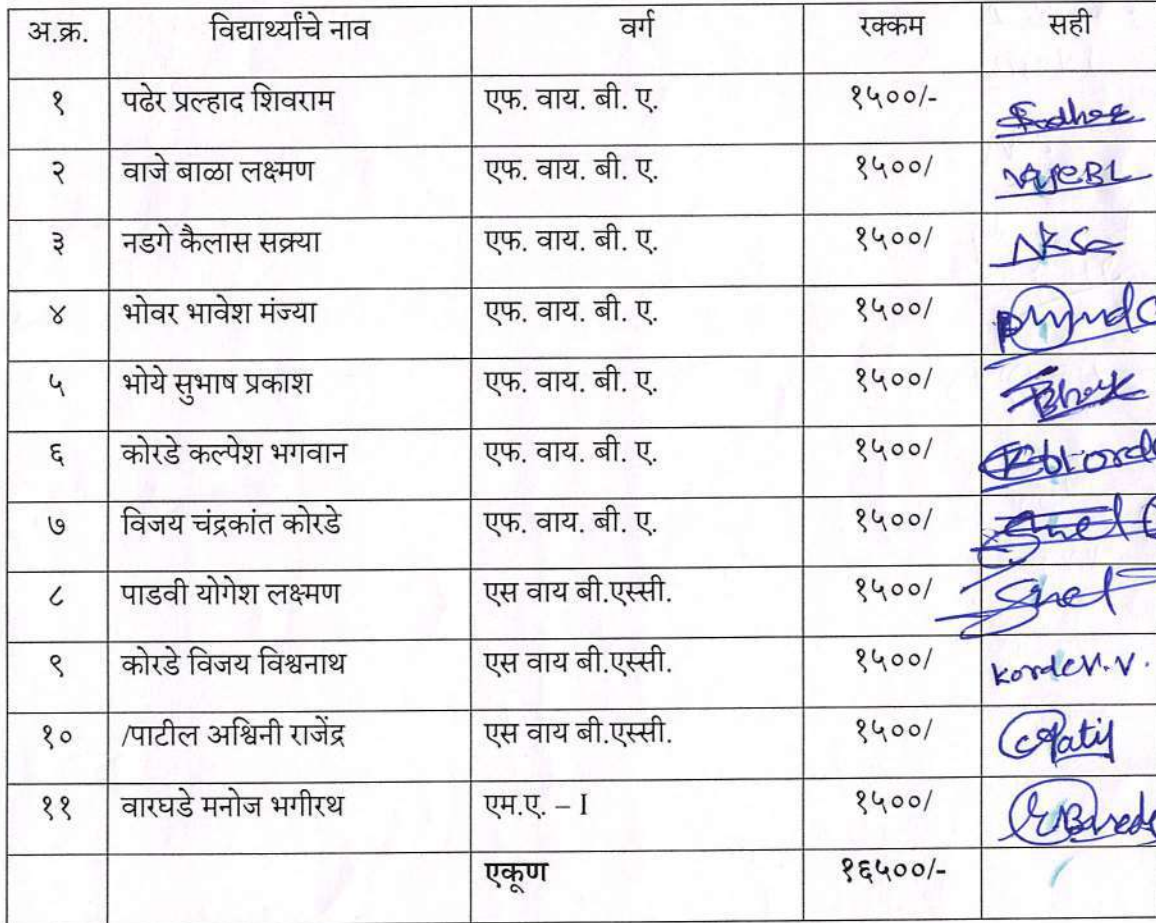 अ.क्र. विद्यार्थ्यांचे नाव वर्ग रक्कम सही
१ पढेर प्रल्हाद शिवराम एफ. वाय. बी. ए. १५००/-
२ वाजे बाळा लक्ष्मण एफ. वाय. बी. ए. १५००/ VajeBL
३ नडगे कैलास सक्र्या एफ. वाय. बी. ए. १५००/
४ भोवर भावेश मंज्या एफ. वाय. बी. ए. १५००/
५ भोये सुभाष प्रकाश एफ. वाय. बी. ए. १५००/
६ कोरडे कल्पेश भगवान एफ. वाय. बी. ए. १५००/
७ विजय चंद्रकांत कोरडे एफ. वाय. बी. ए. १५००/
८ पाडवी योगेश लक्ष्मण एस वाय बी.एस्सी. १५००/
९ कोरडे विजय विश्वनाथ एस वाय बी.एस्सी. १५००/ Korde V. V.
१० /पाटील अश्विनी राजेंद्र एस वाय बी.एस्सी. १५००/
११ वारघडे मनोज भगीरथ एम.ए. – I १५००/
एकूण १६५००/-